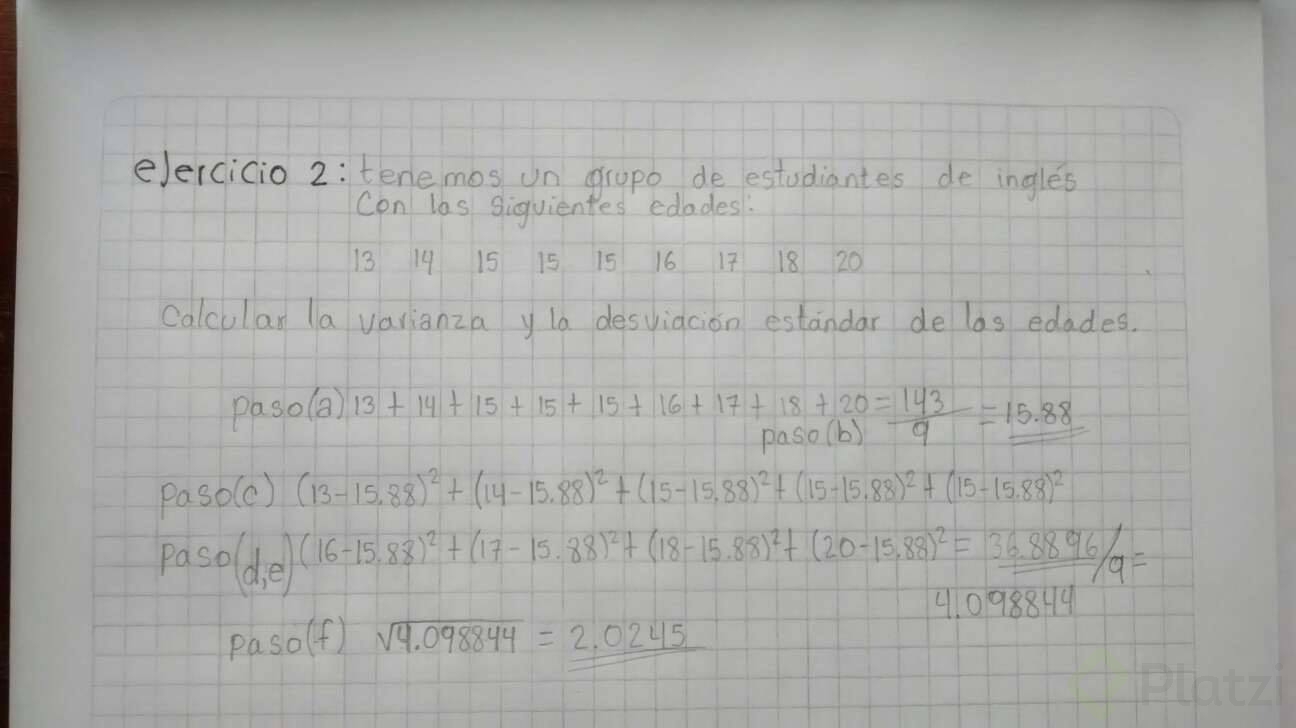 ejercicio 2: tenemos un grupo de estudiantes de inglés
Con las siguientes edades:
13 14 15 15 15 16 17 18 20
Calcular la varianza y la desviación estándar de las edades.
paso(a) 13 + 14 + 15 + 15 + 15 + 16 + 17 + 18 + 20 = 143/9 = 15.88
paso(b)
paso(c) (13-15.88)² + (14-15.88)² + (15-15.88)² + (15-15.88)² + (15-15.88)²
paso(d,e) (16-15.88)² + (17-15.88)² + (18-15.88)² + (20-15.88)² = 36.8896/9 =
4.098844
paso(f) √4.098844 = 2.0245
Platzi